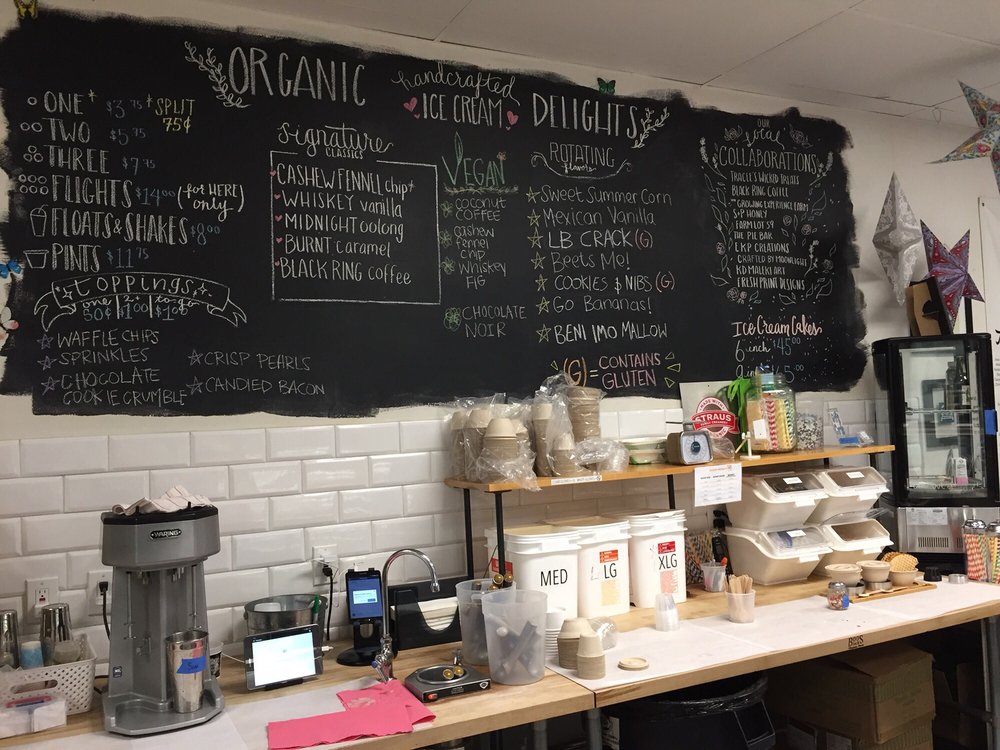 ORGANIC
handcrafted
ICE CREAM
DELIGHTS
ONE+ $3.75 +SPLIT
75¢
TWO $5.75
THREE $7.75
FLIGHTS $14.00 (for HERE only)
FLOATS & SHAKES $8.00
PINTS $11.75
TOPPINGS
one 50¢ 2+ $1.00 to-go $1.00
WAFFLE CHIPS
SPRINKLES
CHOCOLATE
COOKIE CRUMBLE
CRISP PEARLS
CANDIED BACON
Signature
CLASSICS
CASHEW FENNEL chip+
WHISKEY vanilla
MIDNIGHT oolong
BURNT caramel
BLACK RING coffee
VEGAN
coconut
COFFEE
cashew
fennel
chip
whiskey
FIG
CHOCOLATE
NOIR
ROTATING
flavors
Sweet Summer Corn
Mexican Vanilla
LB CRACK (G)
Beets Mo!
COOKIES & NIBS (G)
Go Bananas!
BENI IMO MALLOW
(G) = CONTAINS
GLUTEN
OUR
local
COLLABORATIONS
TRACIE'S WICKED TREATS
BLACK RING COFFEE
GROWING EXPERIENCE FARM
S+P HONEY
FARM LOT 59
THE PIE BAR
LKP CREATIONS
CRAFTED BY MOONLIGHT
KD MALEKI ART
FRESH PRINT DESIGNS
Ice Cream Cakes
6 inch $45.00
STRAUS
WARING
MED
LG
XLG